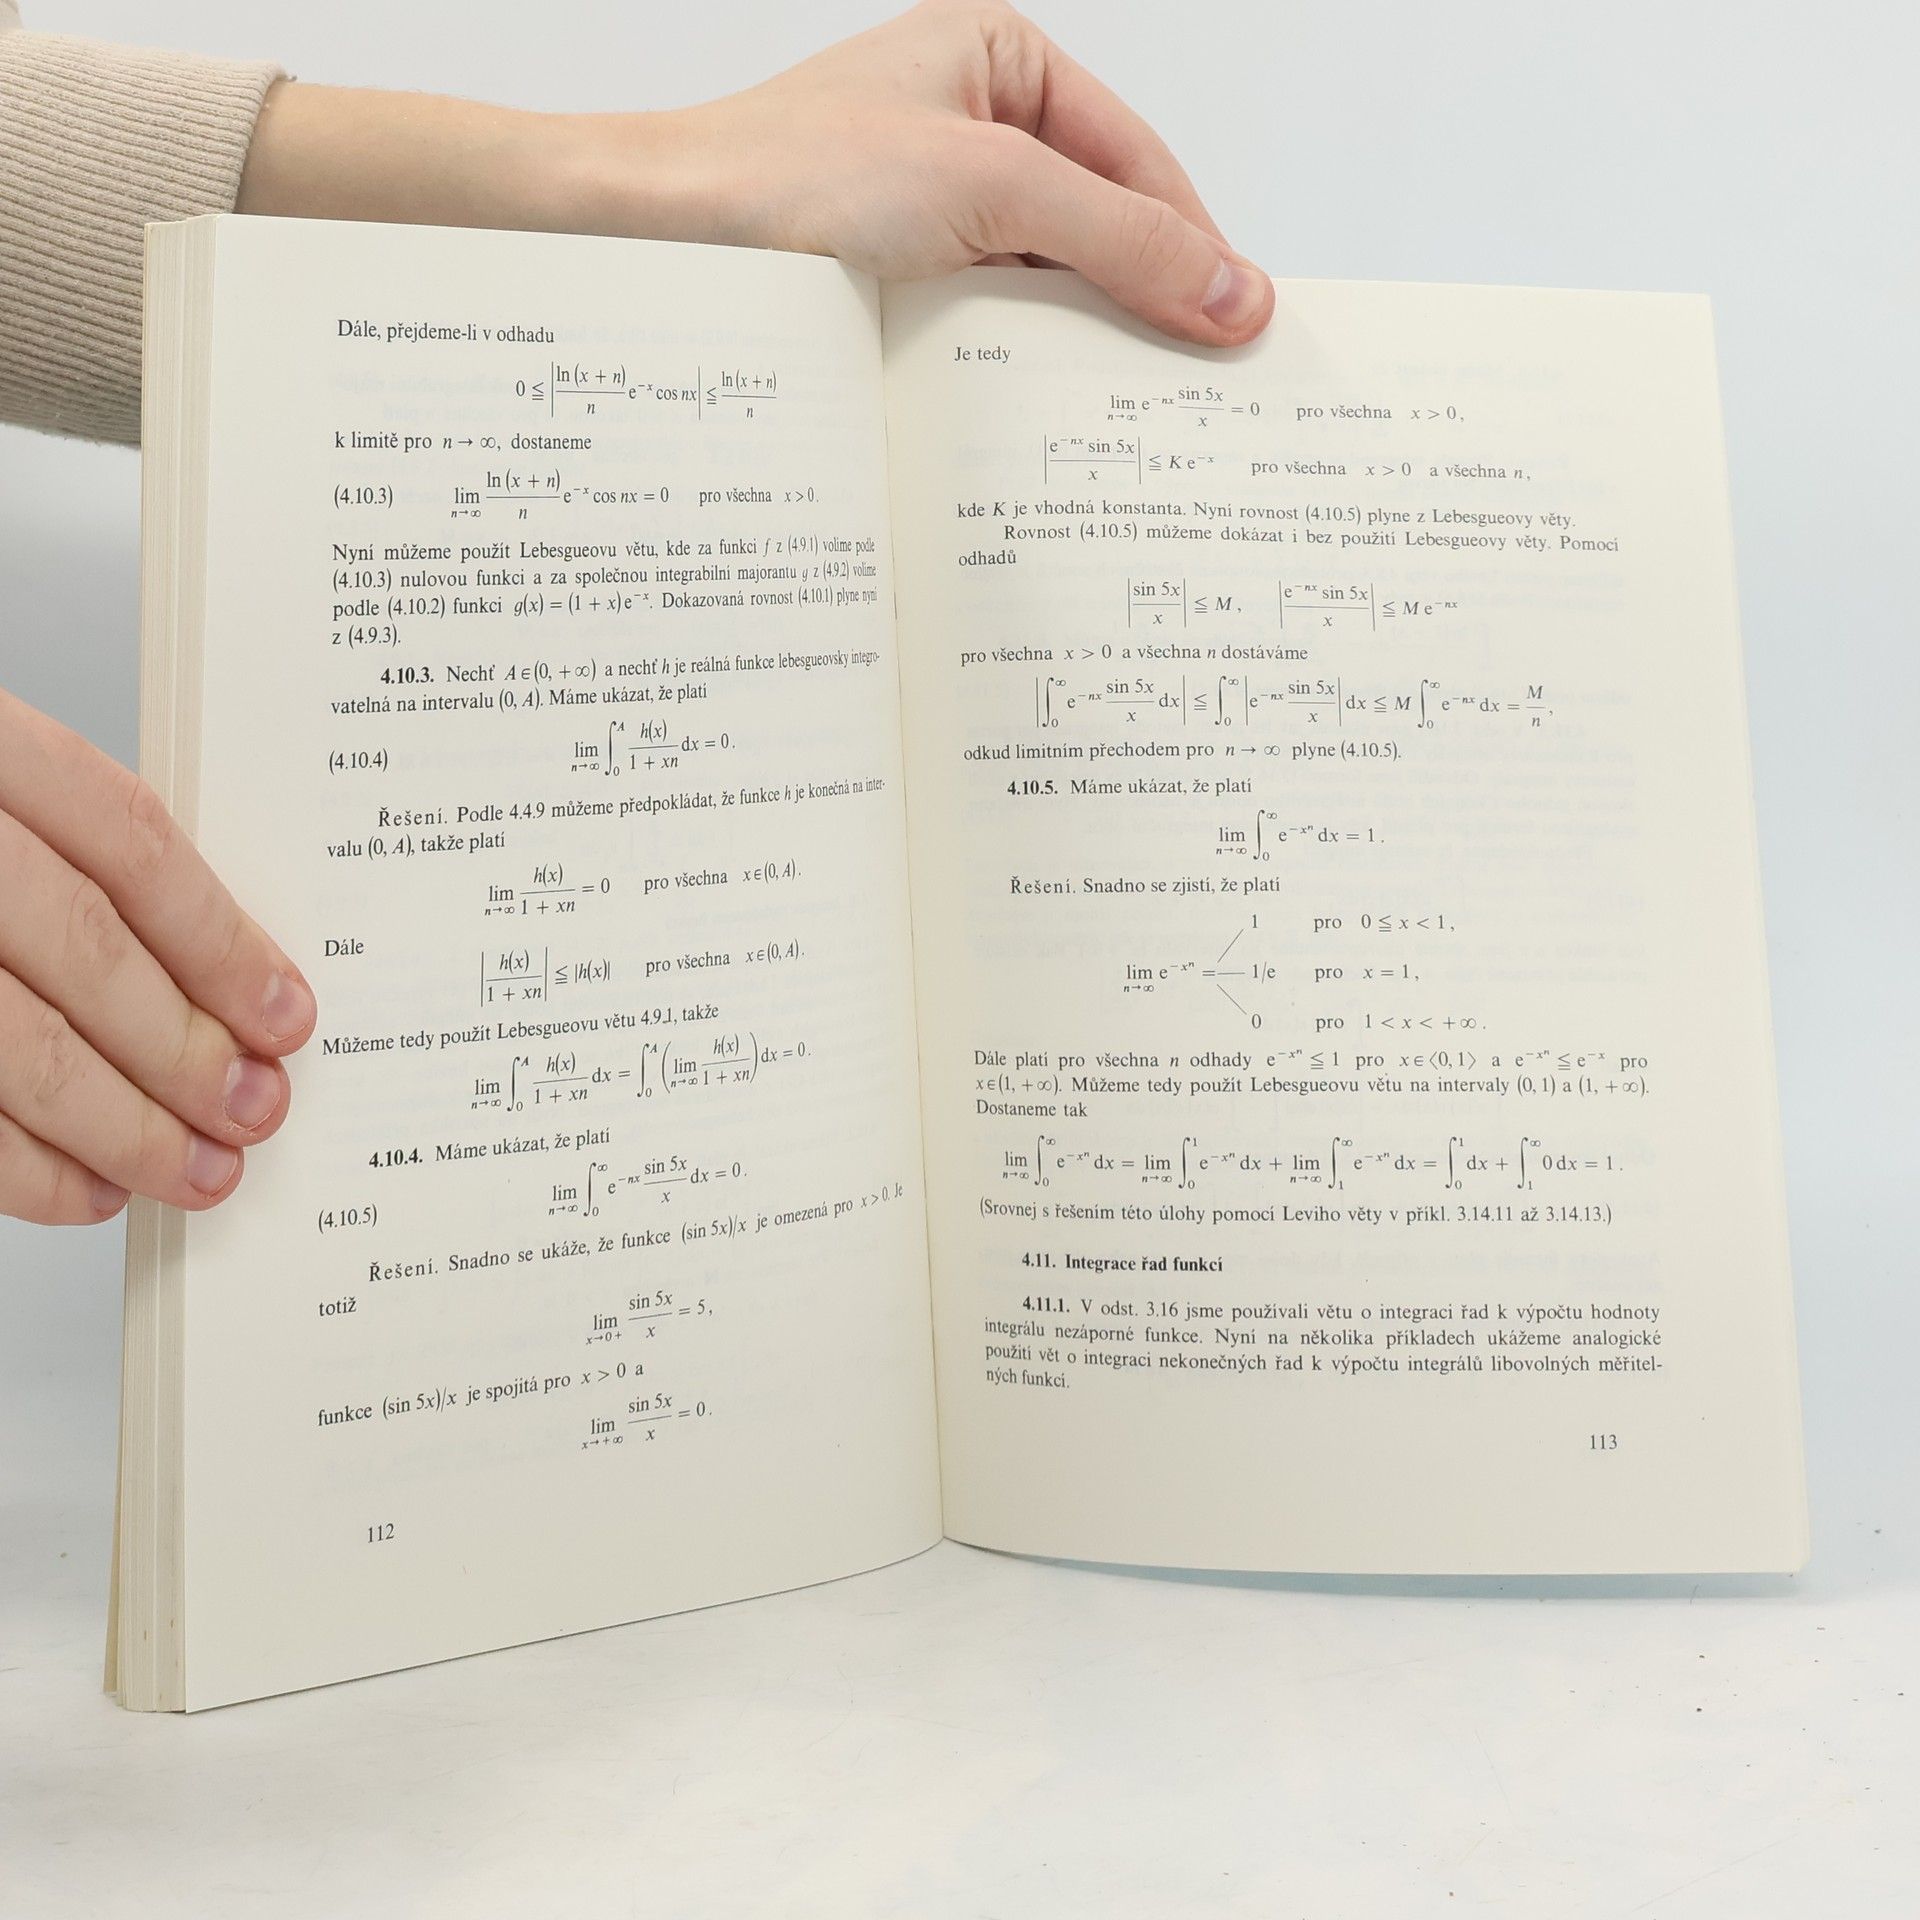 Dále, přejdeme-li v odhadu
0 ≦ |ln (x + n)/n e^{-x} cos nx| ≦ ln (x + n)/n
k limitě pro n → ∞, dostaneme
(4.10.3) lim_{n→∞} ln (x + n)/n e^{-x} cos nx = 0 pro všechna x > 0.
Nyní můžeme použít Lebesgueovu větu, kde za funkci f z (4.9.1) volíme podle
(4.10.3) nulovou funkci a za společnou integrabilní majorantu g z (4.9.2) volíme
podle (4.10.2) funkci g(x) = (1 + x) e^{-x}. Dokazovaná rovnost (4.10.1) plyne nyní
z (4.9.3).
4.10.3. Nechť A ∈ (0, +∞) a nechť h je reálná funkce lebesgueovsky integro-
vatelná na intervalu (0, A). Máme ukázat, že platí
(4.10.4) lim_{n→∞} ∫_0^A h(x)/(1 + xn) dx = 0.
Řešení. Podle 4.4.9 můžeme předpokládat, že funkce h je konečná na inter-
valu (0, A), takže platí
lim_{n→∞} h(x)/(1 + xn) = 0 pro všechna x ∈ (0, A).
Dále
|h(x)/(1 + xn)| ≦ |h(x)| pro všechna x ∈ (0, A).
Můžeme tedy použít Lebesgueovu větu 4.9.1, takže
lim_{n→∞} ∫_0^A h(x)/(1 + xn) dx = ∫_0^A (lim_{n→∞} h(x)/(1 + xn)) dx = 0.
4.10.4. Máme ukázat, že platí
(4.10.5) lim_{n→∞} ∫_0^∞ e^{-nx} sin 5x/x dx = 0.
Řešení. Snadno se ukáže, že funkce (sin 5x)/x je omezená pro x > 0. Je
totiž
lim_{x→0+} sin 5x/x = 5,
funkce (sin 5x)/x je spojitá pro x > 0 a
lim_{x→+∞} sin 5x/x = 0.
112
Je tedy
lim_{n→∞} e^{-nx} sin 5x/x = 0 pro všechna x > 0,
|e^{-nx} sin 5x/x| ≦ K e^{-x} pro všechna x > 0 a všechna n,
kde K je vhodná konstanta. Nyní rovnost (4.10.5) plyne z Lebesgueovy věty.
Rovnost (4.10.5) můžeme dokázat i bez použití Lebesgueovy věty. Pomocí
odhadů
|sin 5x/x| ≦ M, |e^{-nx} sin 5x/x| ≦ M e^{-nx}
pro všechna x > 0 a všechna n dostáváme
|∫_0^∞ e^{-nx} sin 5x/x dx| ≦ ∫_0^∞ |e^{-nx} sin 5x/x| dx ≦ M ∫_0^∞ e^{-nx} dx = M/n,
odkud limitním přechodem pro n → ∞ plyne (4.10.5).
4.10.5. Máme ukázat, že platí
lim_{n→∞} ∫_0^∞ e^{-x^n} dx = 1.
Řešení. Snadno se zjistí, že platí
1 pro 0 ≦ x < 1,
lim_{n→∞} e^{-x^n} = 1/e pro x = 1,
0 pro 1 < x < +∞.
Dále platí pro všechna n odhady e^{-x^n} ≦ 1 pro x ∈ ⟨0, 1⟩ a e^{-x^n} ≦ e^{-x} pro
x ∈ (1, +∞). Můžeme tedy použít Lebesgueovu větu na intervaly (0, 1) a (1, +∞).
Dostaneme tak
lim_{n→∞} ∫_0^∞ e^{-x^n} dx = lim_{n→∞} ∫_0^1 e^{-x^n} dx + lim_{n→∞} ∫_1^∞ e^{-x^n} dx = ∫_0^1 dx + ∫_1^∞ 0 dx = 1.
(Srovnej s řešením této úlohy pomocí Leviho věty v příkl. 3.14.11 až 3.14.13.)
4.11. Integrace řad funkcí
4.11.1. V odst. 3.16 jsme používali větu o integraci řad k výpočtu hodnoty
integrálu nezáporné funkce. Nyní na několika příkladech ukážeme analogické
použití vět o integraci nekonečných řad k výpočtu integrálů libovolných měřitel-
ných funkcí.
113